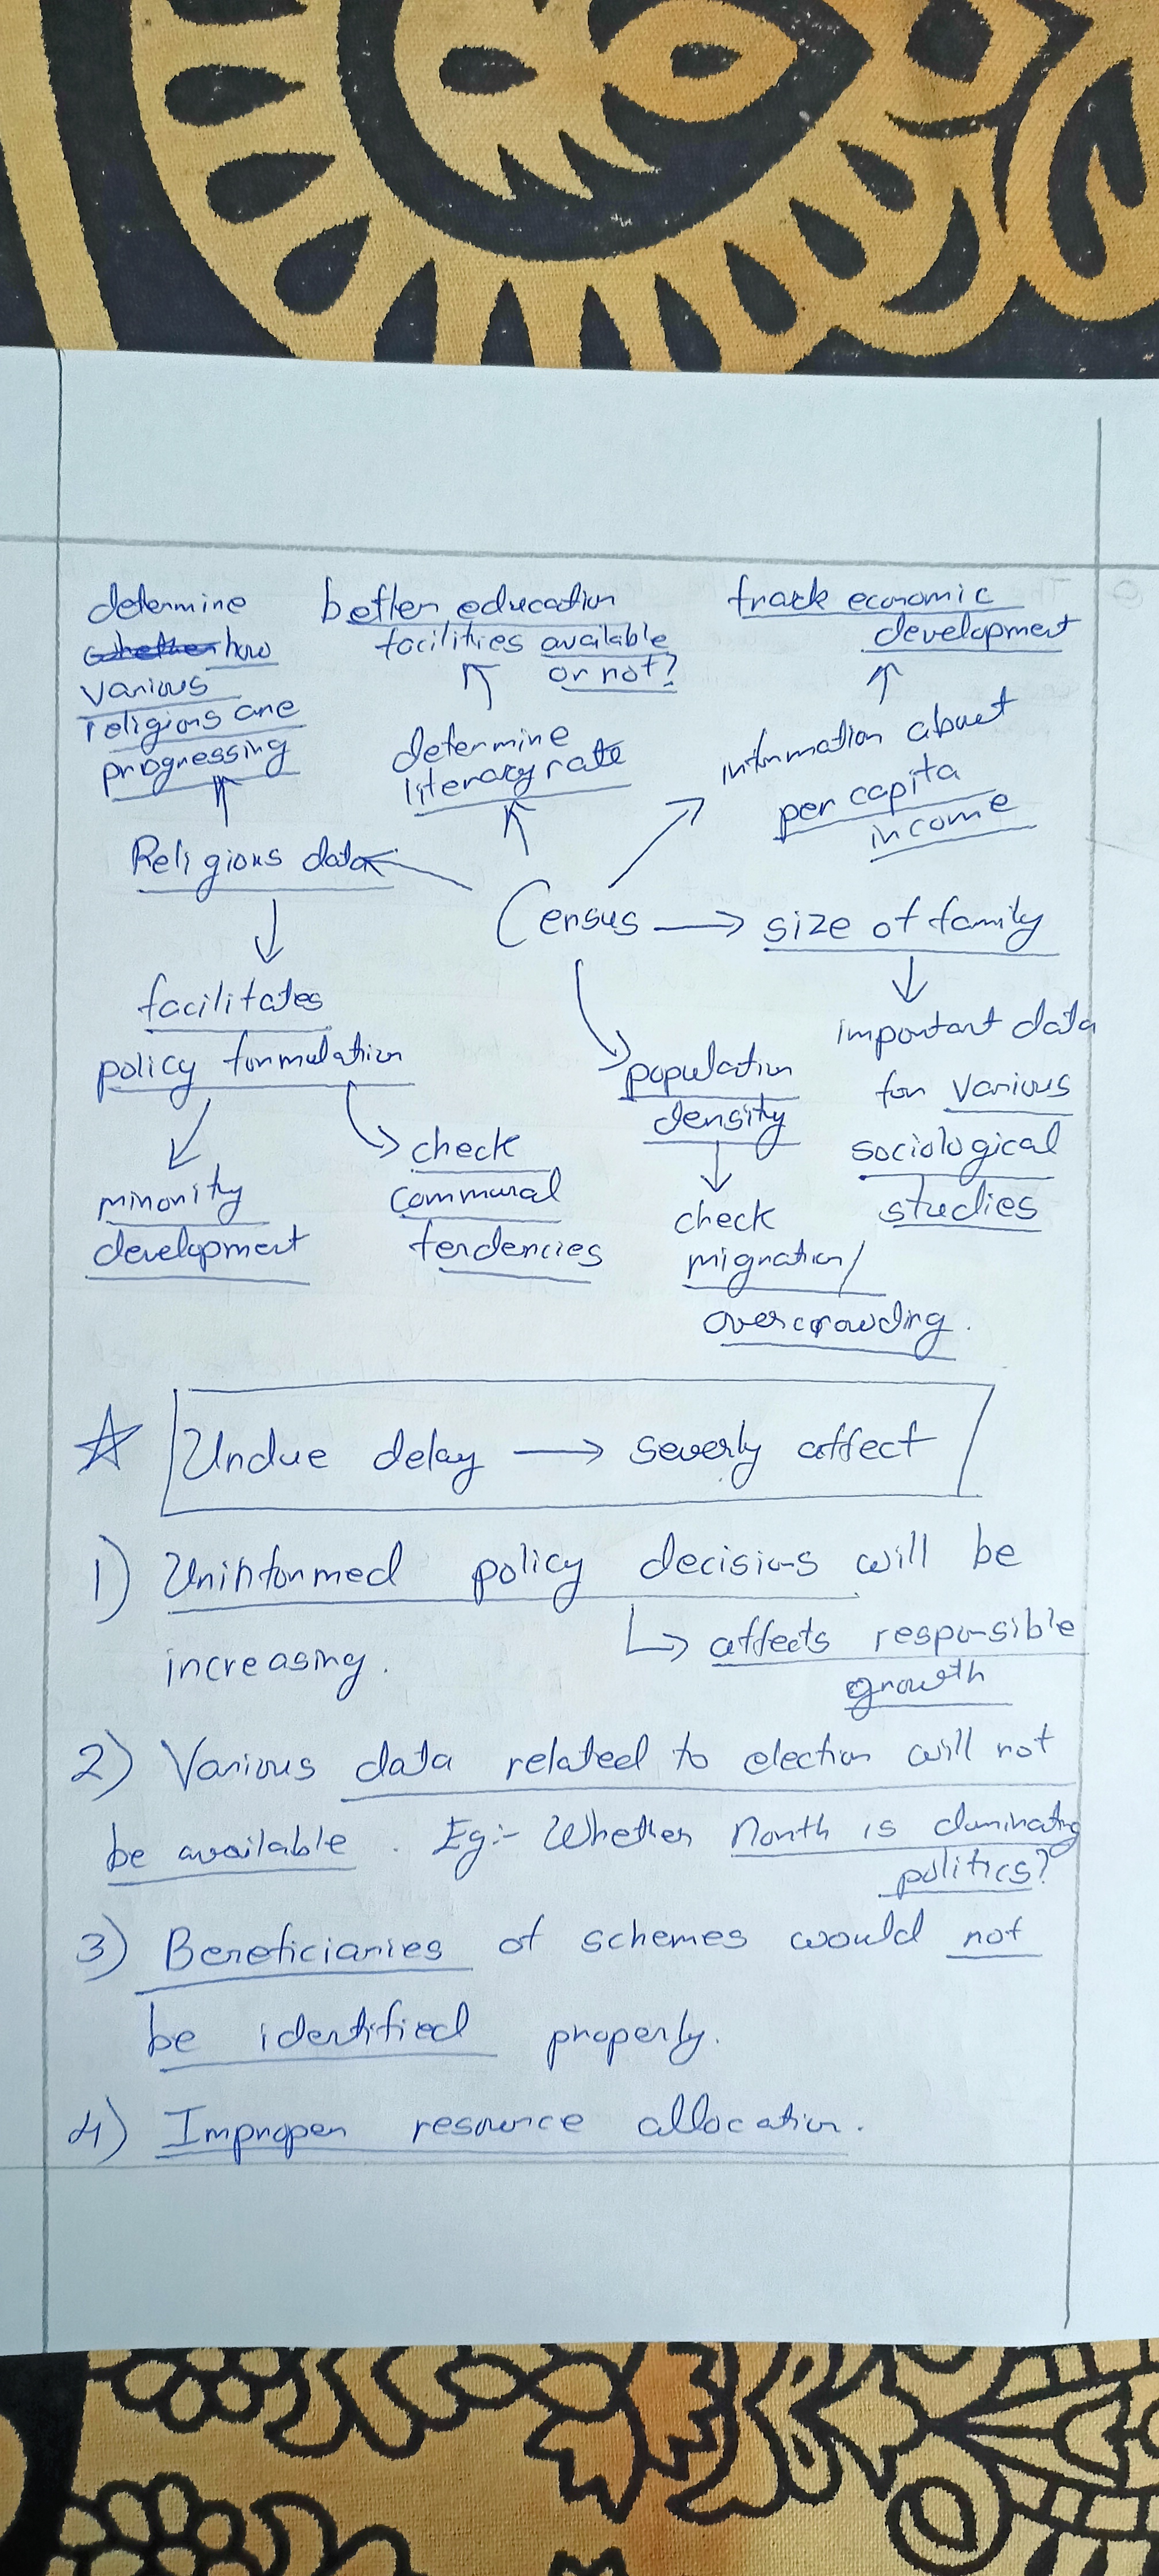 determine
whether how
various
religions are
progressing
better education
facilities available
or not?
track economic
development
determine
literacy rate
information about
per capita
income
Religious data
Census → size of family
facilitates
policy formulation
minority
development
check
communal
tendencies
population
density
check
migration/
overcrowding.
important data
for various
sociological
studies
☆ Undue delay → severly affect
1) Uninformed policy decisions will be
increasing.
↳ affects responsible
growth
2) Various data related to election will not
be available. Eg:- Whether North is dominating
politics?
3) Beneficiaries of schemes would not
be identified properly.
4) Improper resource allocation.